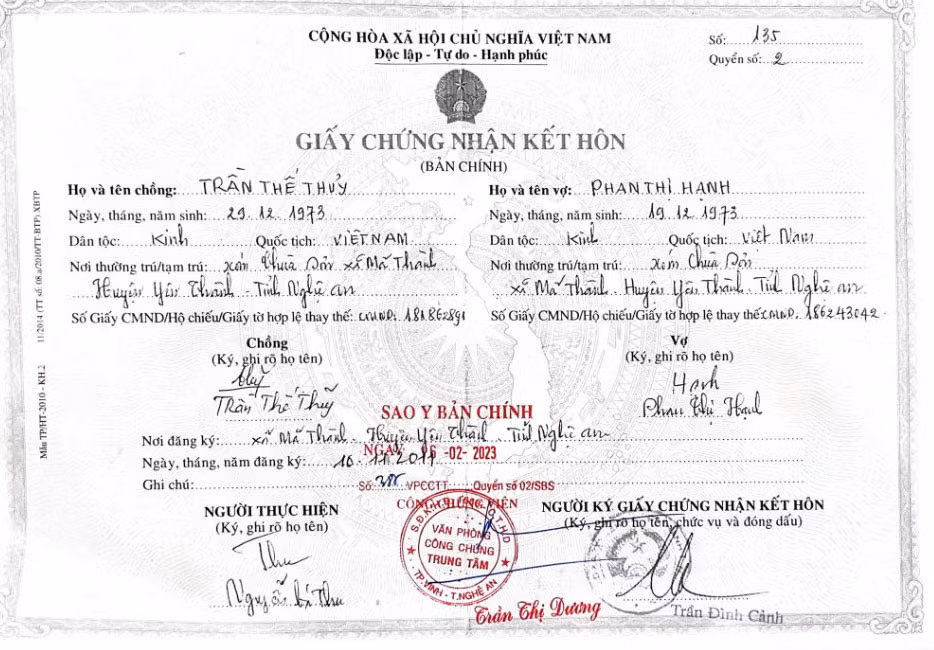 CỘNG HÒA XÃ HỘI CHỦ NGHĨA VIỆT NAM
Độc lập - Tự do - Hạnh phúc
Số: 135
Quyển số: 2
GIẤY CHỨNG NHẬN KẾT HÔN
(BẢN CHÍNH)
Họ và tên chồng: TRẦN THẾ THUỶ
Ngày, tháng, năm sinh: 29.12.1973
Dân tộc: Kinh Quốc tịch: VIỆT NAM
Nơi thường trú/tạm trú: xóm Chùa Sản xã Mã Thành
Huyện Yên Thành - Tỉnh Nghệ an
Số Giấy CMND/Hộ chiếu/Giấy tờ hợp lệ thay thế: CMND.
Chồng
(Ký, ghi rõ họ tên)
Thuỷ
Trần Thế Thuỷ
Họ và tên vợ: PHAN THỊ HẠNH
Ngày, tháng, năm sinh: 19.12.1973
Dân tộc: Kinh Quốc tịch: Việt Nam
Nơi thường trú/tạm trú: xóm Chùa Sản
xã Mã Thành. Huyện Yên Thành. Tỉnh Nghệ an
Số Giấy CMND/Hộ chiếu/Giấy tờ hợp lệ thay thế: CMND. 186243042
Vợ
(Ký, ghi rõ họ tên)
Hạnh
Phan Thị Hạnh
SAO Y BẢN CHÍNH
Nơi đăng ký: xã Mã Thành. Huyện Yên Thành. Tỉnh Nghệ an
NGÀY 06 -02- 2023
Ngày, tháng, năm đăng ký: 10.11.2011
Ghi chú:
Số: VPCCTT Quyển số 02/SBS
CÔNG CHỨNG VIÊN
NGƯỜI THỰC HIỆN
(Ký, ghi rõ họ tên)
Thu
VĂN PHÒNG
CÔNG CHỨNG
TRUNG TÂM
TP.VINH - T.NGHỆ AN
Trần Thị Dương
NGƯỜI KÝ GIẤY CHỨNG NHẬN KẾT HÔN
(Ký, ghi rõ họ tên, chức vụ và đóng dấu)
Trần Đình Cảnh
Mẫu TP/HT-2010 - KH.2 11/2014 (TT số: 08.a/2010/TT-BTP) XBTP